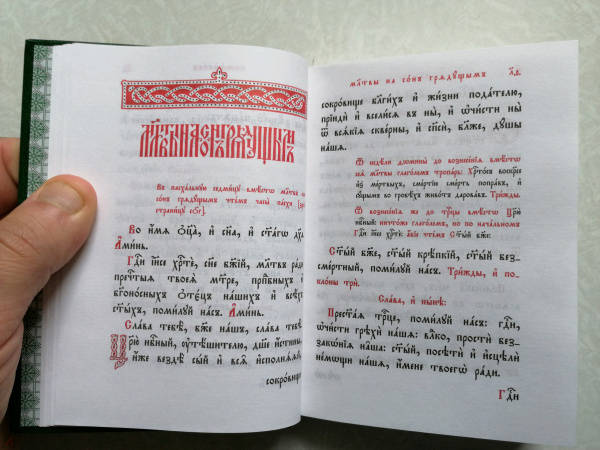 Мл҃твы на со́нъ грѧдꙋ́щымъ
Въ пасха́льнꙋю седми́цꙋ вмѣ́стѡ мл҃твъ на
со́нъ грѧдꙋ́щымъ чте́мъ часы̀ па́схи
страни́цꙋ
Во и҆́мѧ ѻ҆ц҃а̀, и҆ сн҃а, и҆ ст҃а́гѡ дх҃а.
А҆ми́нь.
Гд҇и і҆и҃се хрⷭ҇тѐ, сн҃е бж҃їй, мл҃твъ ра́ди
пречⷭ҇тыѧ твоеѧ̀ мт҃ре, прпⷣбныхъ и҆
бг҃оно́сныхъ ѻ҆тє́цъ на́шихъ и҆ всѣ́хъ
ст҃ы́хъ, поми́лꙋй на́съ. А҆ми́нь.
Сла́ва тебѣ̀, бж҃е на́шъ, сла́ва тебѣ̀.
Цр҃ю̀ нбⷭ҇ный, ᲂу҆тѣ́шителю, дш҃е и҆́стины,
и҆́же вездѣ̀ сы́й и҆ всѧ̑ и҆сполнѧ́ѧй,
сокро́вище
мл҃твы на со́нъ грѧдꙋ́щымъ л҃в.
сокро́вище бл҃ги́хъ и҆ жи́зни пода́телю,
прїидѝ и҆ всели́сѧ въ ны̀, и҆ ѡ҆чи́сти ны̀
ѿ всѧ́кїѧ скве́рны, и҆ сп҃сѝ, бл҃же, дꙋ́шы
на́шѧ.
Ѿ недѣ́ли ѳѡмины̀ до вознесе́нїѧ вмѣ́стѡ
сеѧ̀ мл҃твы глаго́лемъ тропа́рь: Хрⷭ҇то́съ воскре́се
и҆з̾ ме́ртвыхъ, сме́ртїю сме́рть попра́въ, и҆
сꙋ́щымъ во гробѣ́хъ живо́тъ дарова́въ. Три́жды.
Ѿ вознесе́нїѧ же до трⷪ҇цы вмѣ́стѡ Цр҃ю̀
нбⷭ҇ный: ничто́же глаго́лемъ, но по нача́льномъ
Гд҇и і҆и҃се хрⷭ҇тѐ: а҆́бїе чте́мъ Ст҃ы́й бж҃е.
Ст҃ы́й бж҃е, ст҃ы́й крѣ́пкїй, ст҃ы́й без-
сме́ртный, поми́лꙋй на́съ. Три́жды, и҆ по-
кло́ны трѝ.
Сла́ва, и҆ ны́нѣ:
Прест҃а́ѧ трⷪ҇це, поми́лꙋй на́съ: гдⷭ҇и,
ѡ҆чи́сти грѣхѝ на́шѧ: влⷣко, простѝ без-
зако́нїѧ на̑ша: ст҃ы́й, посѣтѝ и҆ и҆сцѣлѝ
не́мѡщи на́шѧ, и҆́мене твоегѡ̀ ра́ди.
Гдⷭ҇и